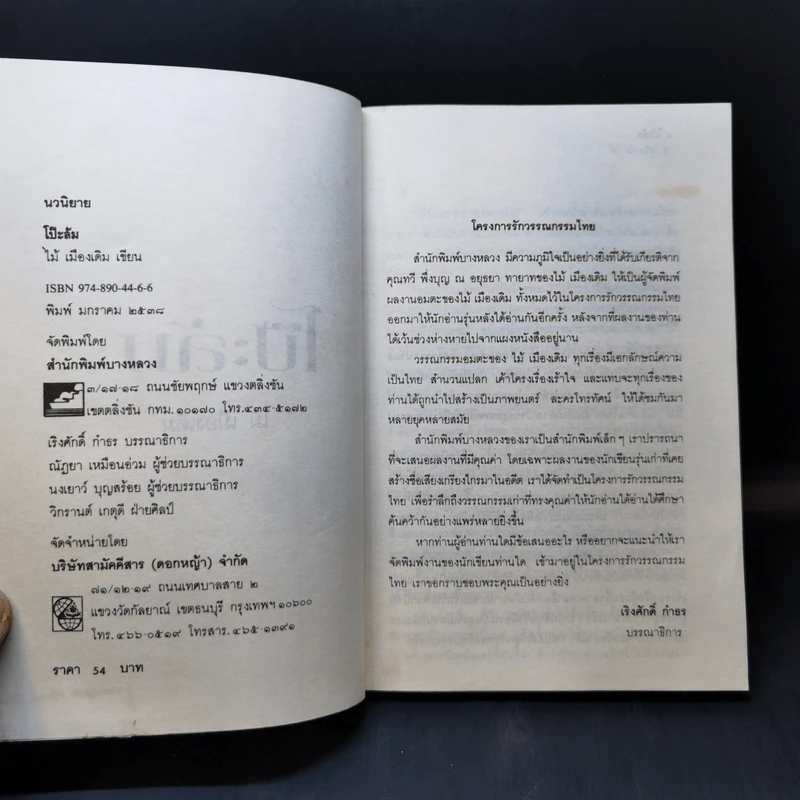 นวนิยาย
โป๊ะล้ม
ไม้ เมืองเดิม เขียน
ISBN 974-890-44-6-6
พิมพ์ มกราคม ๒๕๓๘
จัดพิมพ์โดย
สำนักพิมพ์บางหลวง
๓/๑๗-๑๘ ถนนชัยพฤกษ์ แขวงตลิ่งชัน
เขตตลิ่งชัน กทม.๑๐๑๗๐ โทร.๔๓๔-๕๑๗๒
เริงศักดิ์ กำธร บรรณาธิการ
ณัฎยา เหมือนอ่วม ผู้ช่วยบรรณาธิการ
นงเยาว์ บุญสร้อย ผู้ช่วยบรรณาธิการ
วิกรานต์ เกตุดี ฝ่ายศิลป์
จัดจำหน่ายโดย
บริษัทสามัคคีสาร (ดอกหญ้า) จำกัด
๗๑/๑๒-๑๙ ถนนเทศบาลสาย ๒
แขวงวัดกัลยาณ์ เขตธนบุรี กรุงเทพฯ๑๐๖๐๐
โทร.๔๖๖-๐๕๑๙ โทรสาร.๔๖๕-๑๓๙๑
ราคา 54 บาท
โครงการรักวรรณกรรมไทย
สำนักพิมพ์บางหลวง มีความภูมิใจเป็นอย่างยิ่งที่ได้รับเกียรติจาก
คุณทวี พึ่งบุญ ณ อยุธยา ทายาทของไม้ เมืองเดิม ให้เป็นผู้จัดพิมพ์
ผลงานอมตะของไม้ เมืองเดิม ทั้งหมดไว้ในโครงการรักวรรณกรรมไทย
ออกมาให้นักอ่านรุ่นหลังได้อ่านกันอีกครั้ง หลังจากที่ผลงานของท่าน
ได้เว้นช่วงห่างหายไปจากแผงหนังสืออยู่นาน
วรรณกรรมอมตะของ ไม้ เมืองเดิม ทุกเรื่องมีเอกลักษณ์ความ
เป็นไทย สำนวนแปลก เค้าโครงเรื่องเร้าใจ และแทบจะทุกเรื่องของ
ท่านได้ถูกนำไปสร้างเป็นภาพยนตร์ ละครโทรทัศน์ ให้ได้ชมกันมา
หลายยุคหลายสมัย
สำนักพิมพ์บางหลวงของเราเป็นสำนักพิมพ์เล็ก ๆ เราปรารถนา
ที่จะเสนอผลงานที่มีคุณค่า โดยเฉพาะผลงานของนักเขียนรุ่นเก่าที่เคย
สร้างชื่อเสียงเกรียงไกรมาในอดีต เราได้จัดทำเป็นโครงการรักวรรณกรรม
ไทย เพื่อรำลึกถึงวรรณกรรมเก่าที่ทรงคุณค่าให้นักอ่านได้อ่านได้ศึกษา
ค้นคว้ากันอย่างแพร่หลายยิ่งขึ้น
หากท่านผู้อ่านท่านใดมีข้อเสนออะไร หรืออยากจะแนะนำให้เรา
จัดพิมพ์งานของนักเขียนท่านใด เข้ามาอยู่ในโครงการรักวรรณกรรม
ไทย เราขอกราบขอบพระคุณเป็นอย่างยิ่ง
เริงศักดิ์ กำธร
บรรณาธิการ